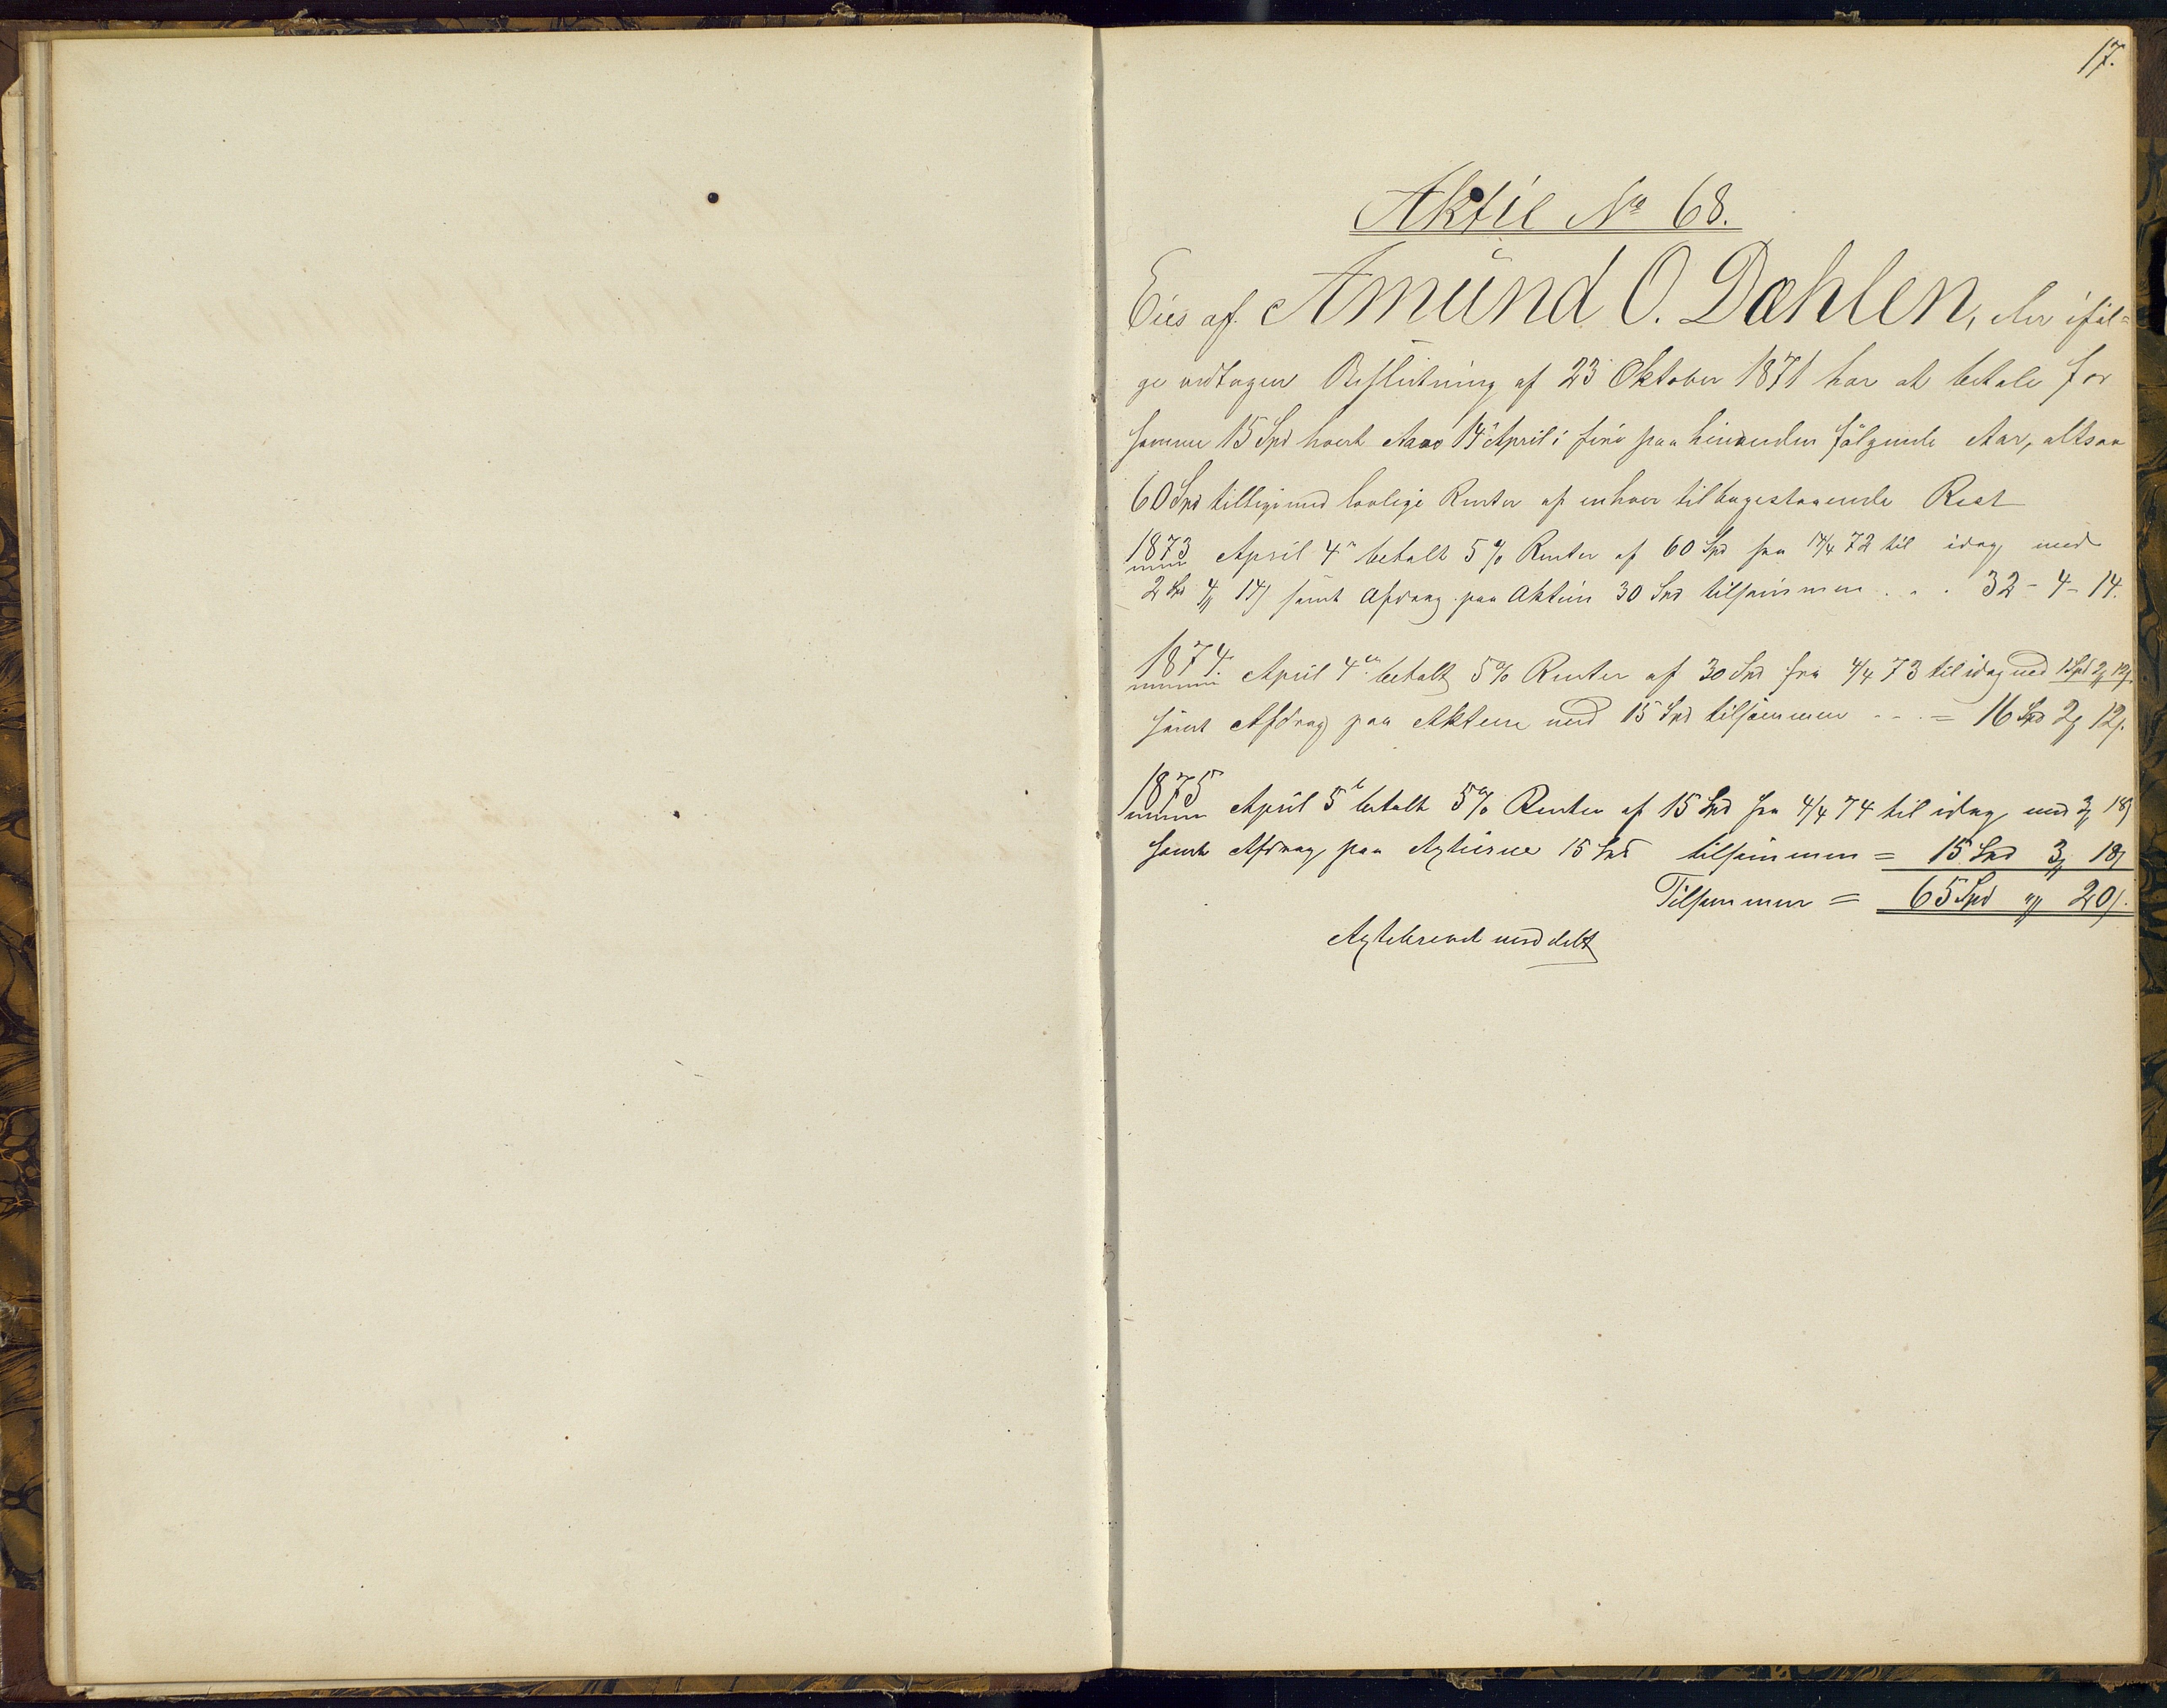 17.
Aktie No 68.
Eies af Amund O. Dæhlen, der iføl=
ge vedtagen Beslutning af 23 Oktober 1871 har at betale for
samme 15 Spd hvert Aars 14 April i fire paa hinanden følgende Aar, altsaa
60 Spd tilligemed lovlige Renter af enhver tilbagestaaende Rest
1873 April 4 betalt 5% Renter af 60 Spd fra 14/4 72 til idag med
2 Spd 4 14 samt Afdrag paa Aktien 30 Spd tilsammen . . . 32 - 4 - 14.
1874. April 4 betalt 5% Renter af 30 Spd fra 4/4 73 til idag med 1 Spd 2 12
samt Afdrag paa Aktien med 15 Spd tilsammen - - . = 16 Spd 2 12
1875 April 5 betalt 5% Renter af 15 Spd fra 4/4 74 til idag med 3 18
samt Afdrag paa 15 Spd tilsammen = 15 Spd 3 18
Tilsammen = 65 Spd " 20
meddelt